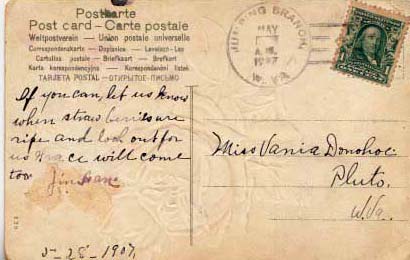 Postkarte
Post card – Carte postale
Weltpostverein – Union postale universelle
Correspondenzkarte – Dopisnice – Levelező-Lap
Cartolina postale – Briefkaart – Brefkort
Karta korespondencyjna – Korespondenčni listek
TARJETA POSTAL – ОТКРЫТОЕ ПИСЬМО
BRANCH,
MAY
A.M.
1907
W. VA.
1
If you can, let us know
when strawberries are
ripe and look out for
us Grace will come
too
5-28-1907,
Miss Vania Donohoe
Pluto,
W.Va.